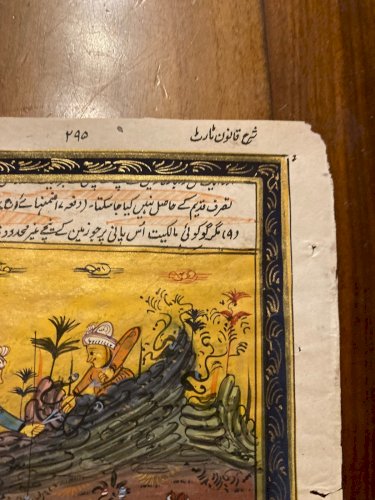 شرح قانون ٹارٹ ۲۹۵
تصرف قدیم کے حاصل نہیں کیا جا سکتا۔ (دفعہ ۱۷ ضمنہائے
(۹) مگر گو کوئی مالکیت اُس پانی پر جو زمین کے نیچے غیر محدود